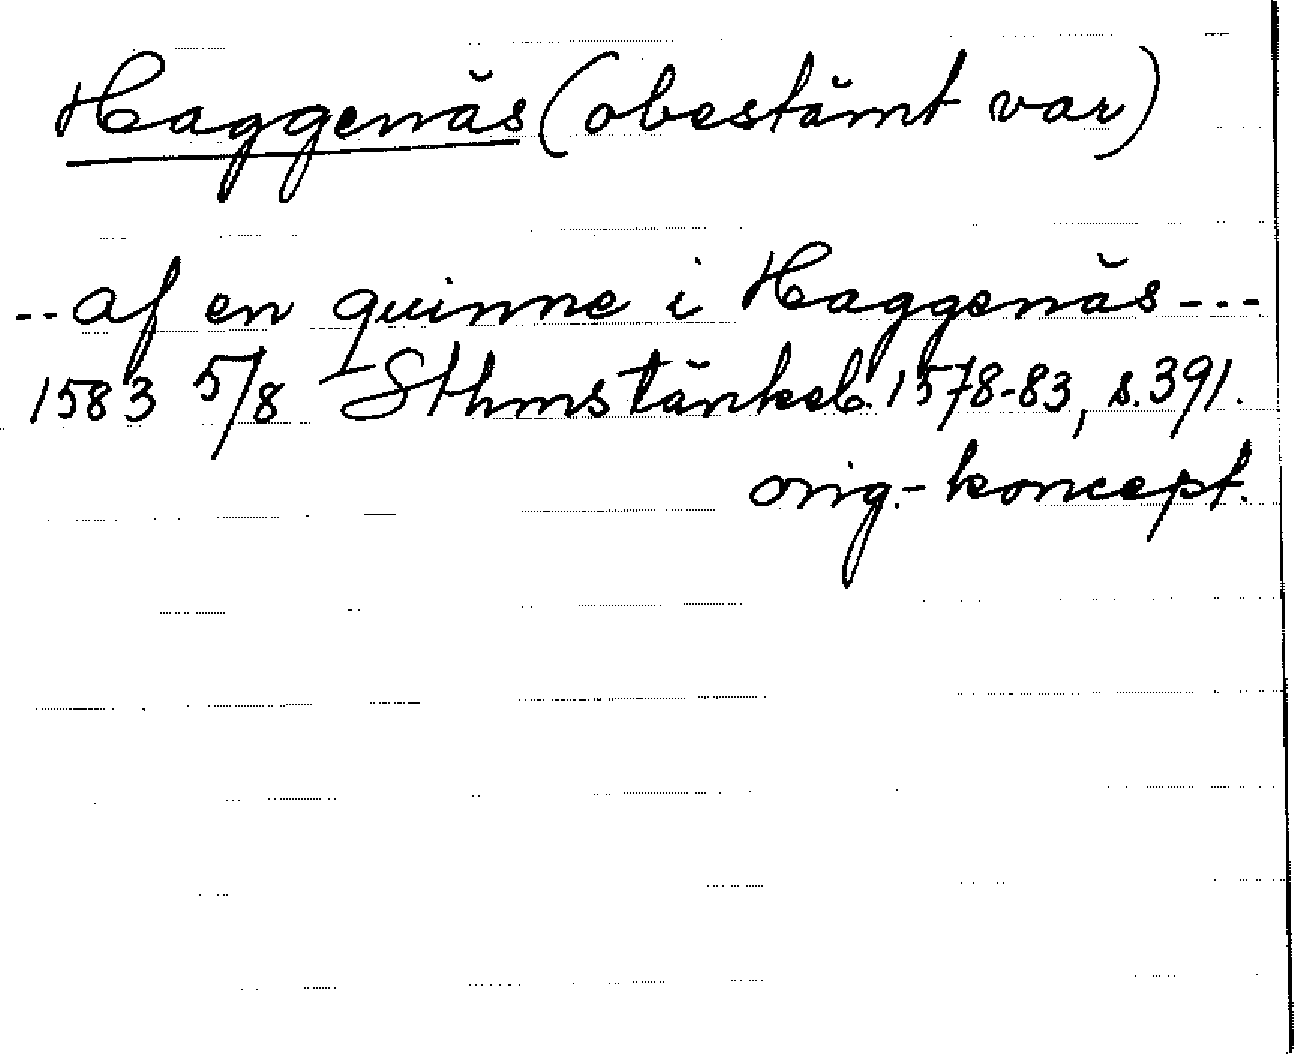 Haggenäs (obestämt var)
-- af en quinne i Haggenäs ---
1583 5/8 Sthms tänkeb. 1578-83, s. 391.
orig.- koncept.